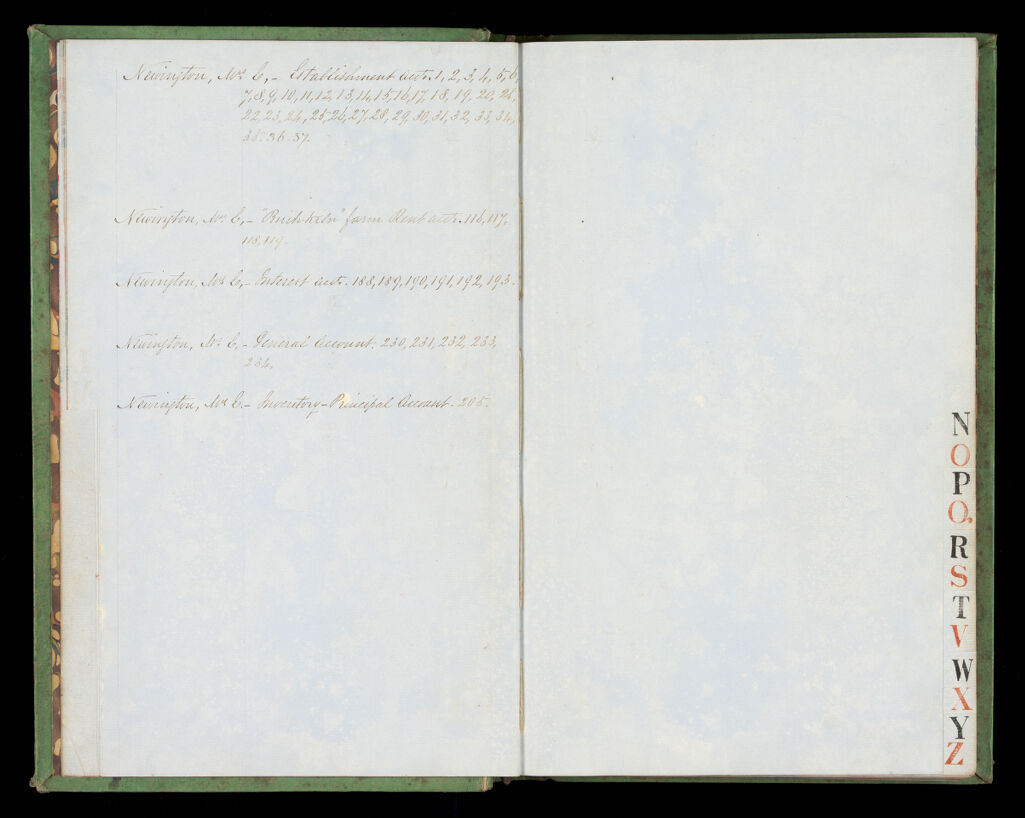 Newington, Mr C, - Establishment accts. 1, 2, 3, 4, 5, 6
7, 8, 9, 10, 11, 12, 13, 14, 15, 16, 17, 18, 19, 20, 21,
22, 23, 24, 25, 26, 27, 28, 29, 30, 31, 32, 33, 34,
35. 36. 37.
Newington, Mr C, - farm Rent accts. 116, 117,
118, 119.
Newington, Mr C, - Interest accts. 188, 189, 190, 191, 192, 193.
Newington, Mr C, - General Account. 230, 231, 232, 233,
234,
Newington, Mr C. - Inventory - Principal Account. 205.
N
O
P
Q
R
S
T
V
W
X
Y
Z